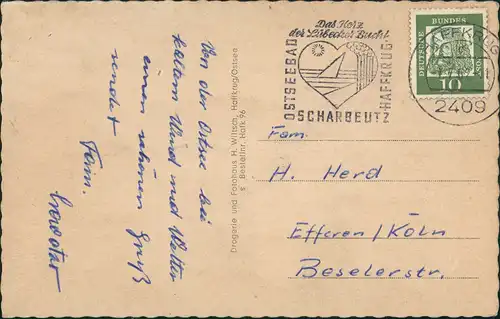 Von der Ostsee bei
kaltem Wind und Wetter
einen schönen Gruß
sendet
Fam.
Drogerie und Fotohaus H. Wiltsch, Haffkrug/Ostsee
Bestellnr. Hafk 96
Das Herz
der Lübecker Bucht
OSTSEEBAD
SCHARBEUTZ
HAFFKRUG
HAFFKRUG
2409
DEUTSCHE
BUNDESPOST
10
Fam.
H. Herd
Efferen/Köln
Beselerstr.